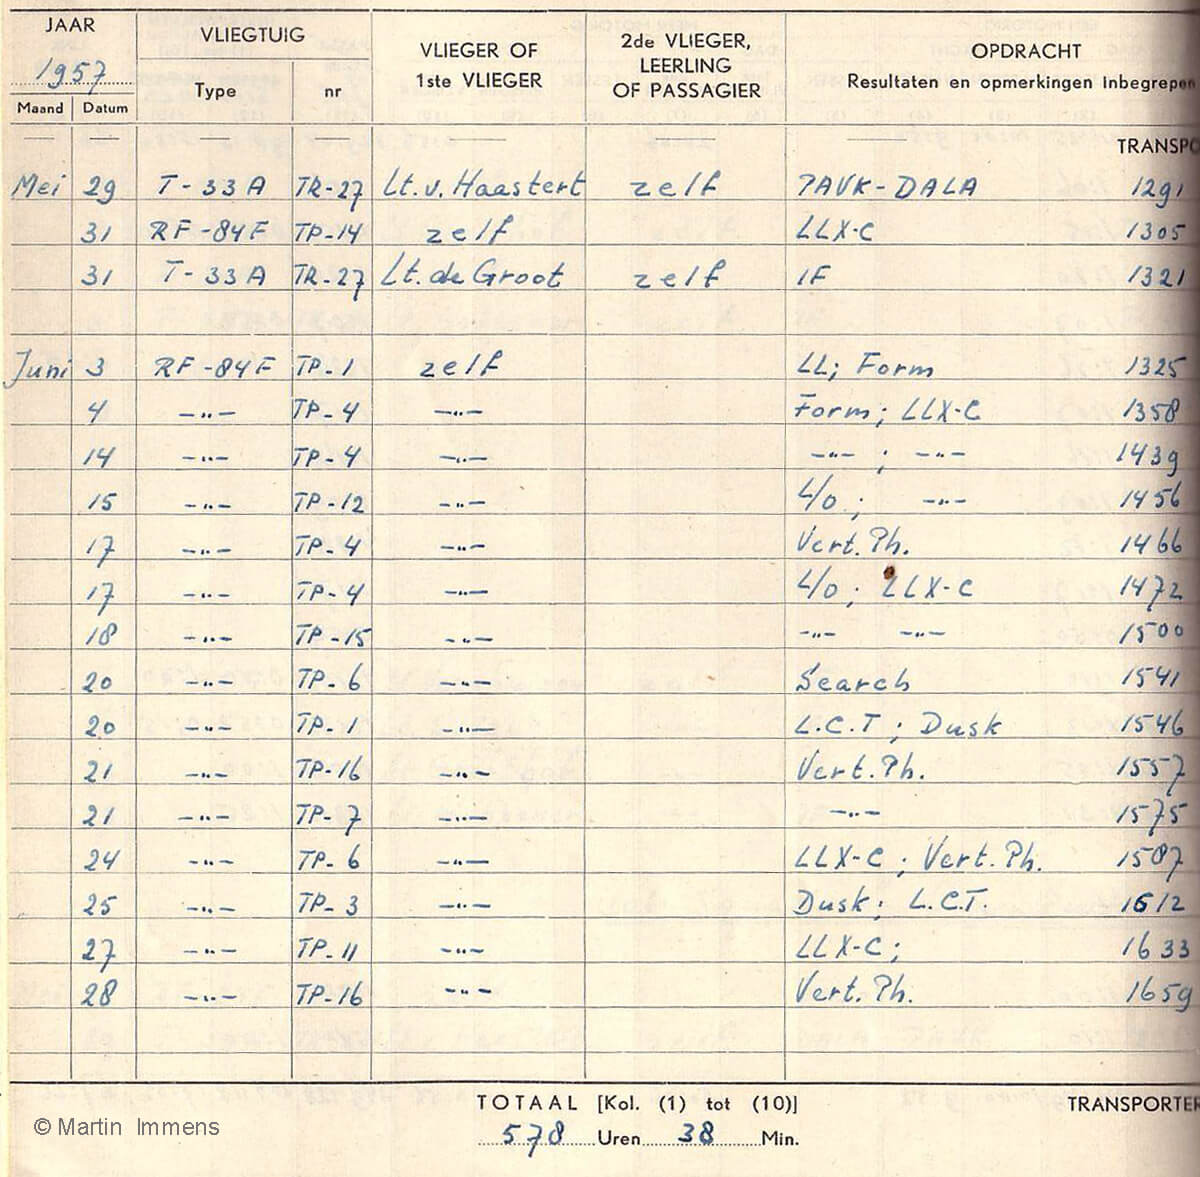 JAAR VLIEGTUIG VLIEGER OF 1ste VLIEGER 2de VLIEGER, LEERLING OF PASSAGIER OPDRACHT
1957 Type nr Resultaten en opmerkingen Inbegrepen
Maand Datum
TRANSPO
Mei 29 T-33A TR-27 Lt. v. Haastert zelf PAVK-DALA 1291
31 RF-84F TP-14 zelf LLX-C 1305
31 T-33A TR-27 Lt. de Groot zelf IF 1321
Juni 3 RF-84F TP-1 zelf LL; Form 1325
4 —"— TP-4 —"— Form; LLX-C 1358
14 —"— TP-4 —"— —"— ; —"— 1439
15 —"— TP-12 —"— L/o; —"— 1456
17 —"— TP-4 —"— Vert. Ph. 1466
17 —"— TP-4 —"— L/o; LLX-C 1472
18 —"— TP-15 —"— —"— —"— 1500
20 —"— TP-6 —"— Search 1541
20 —"— TP-1 —"— L.C.T; Dusk 1546
21 —"— TP-16 —"— Vert. Ph. 1557
21 —"— TP-7 —"— —"— 1575
24 —"— TP-6 —"— LLX-C; Vert. Ph. 1587
25 —"— TP-3 —"— Dusk; L.C.T. 1612
27 —"— TP-11 —"— LLX-C; 1633
28 —"— TP-16 —"— Vert. Ph. 1659
TOTAAL [Kol. (1) tot (10)] TRANSPORTER
578 Uren 38 Min.
© Martin Immens